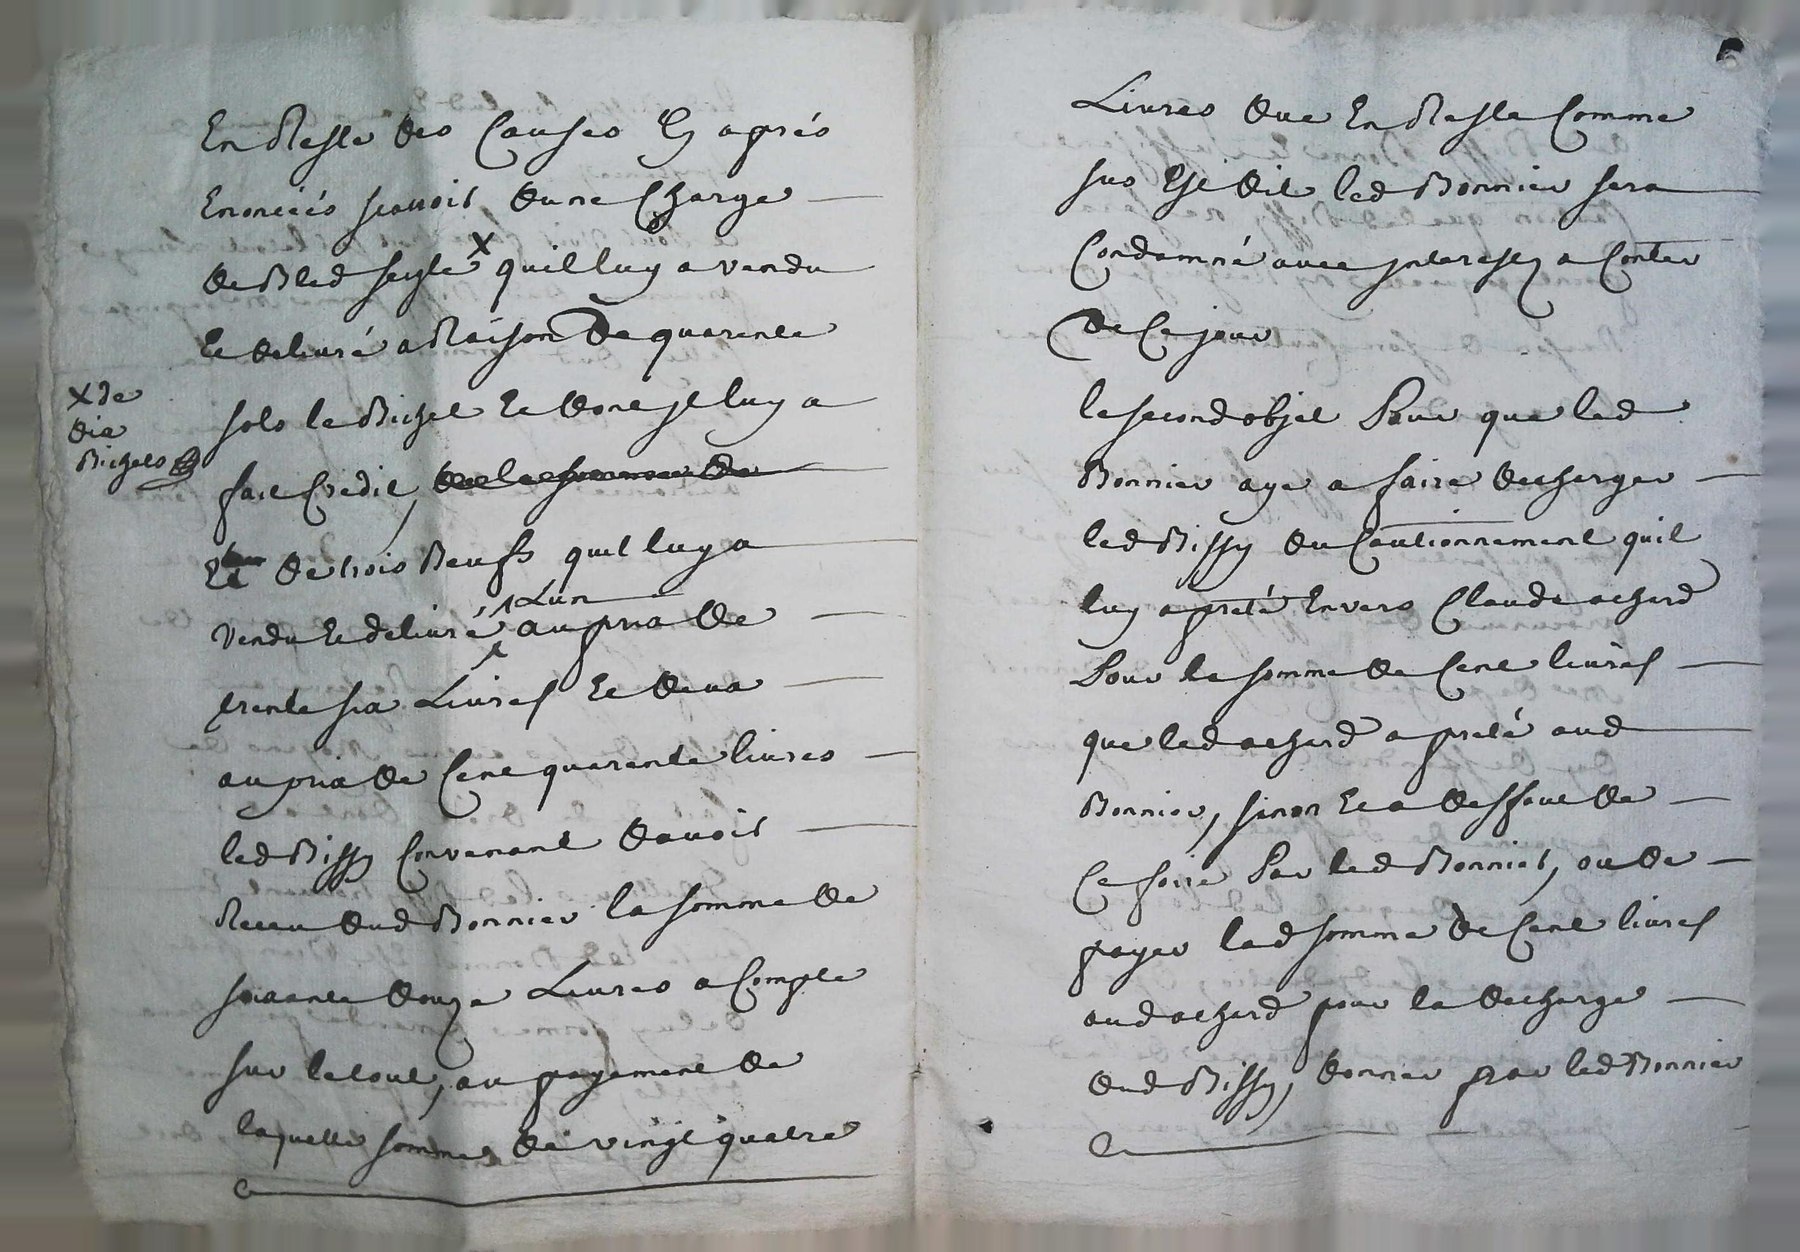 En Reste des Causes Cy après
Enonciés scavoir dune Charge
de Bled seyle x quil luy a vendu
Et delivré a Raison de quarente
sols le Bichet Et dont jl luy a
x de
dix
Bichets
fait Credit, de la somme de
Et de trois Beufs quil luy a
Vendu Et delivré, Lun au prix de
trente six Livres Et deux
au prix de Cent quarente livres
led Bissy Convenant davoir
Receu dud Bonnier la somme de
soixante douze Livres a Compte
sur le tout, au payement de
laquelle somme de vingt quatre
Livres due En Reste Comme
sus Est dit led Bonnier sera
Condamné avec jnterests a Conter
de Ce jour
le second objet Pour que led
Bonnier aye a faire decharger
led Bissy du Cautionnement quil
luy a preté Envers Claude achard
Pour la somme de Cent livres
que led achard a preté aud
Bonnier, sinon Et a deffaut de
Ce foire Par led Bonnier, ou de
payer lad somme de Cent livres
aud achard pour la decharge
dud Bissy, donner par led Bonnier